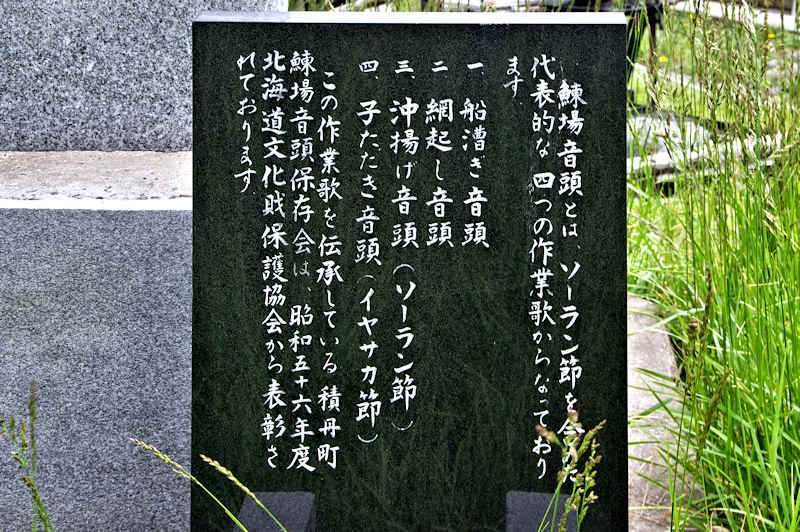 鰊場音頭とは、ソーラン節を含めた
代表的な四つの作業歌からなっており
ます。
一、船漕ぎ音頭
二　網起し音頭
三、沖揚げ音頭（ソーラン節）
四、子たたき音頭（イヤサカ節）
この作業歌を伝承している積丹町
鰊場音頭保存会は、昭和五十六年度
北海道文化財保護協会から表彰さ
れております